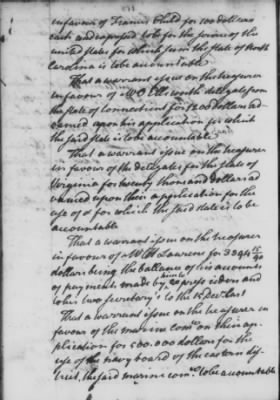 in favour of Francis Child for 100 dollars
each and expressed to be for the service of the
united States for which sum the State of North
Carolina is to be accountable
That a warrant issue on the treasurer
in favour of Mr O Ellsworth delegate from
the State of Connecticut for 1200 dollars ad
vanced upon his application for which
the said State is to be accountable
That a warrant issue on the treasurer
in favour of the delegates for the State of
Virginia for twenty thousand dollars ad
vanced upon their application for the
use of & for which the said State is to be
accountable
That a warrant issue on the treasurer
in favour of Mr H Laurens for 3394 15/90
dollars being the ballance of his accounts
of payment made by him as president and
to his two Secretary's to the 15 Dec last
That a warrant issue on the treasurer in
favour of the marine comee on their ap
plication for 500.000 dollars for the
use of the navy board of the eastern dis
trict, the said marine comee to be accountable